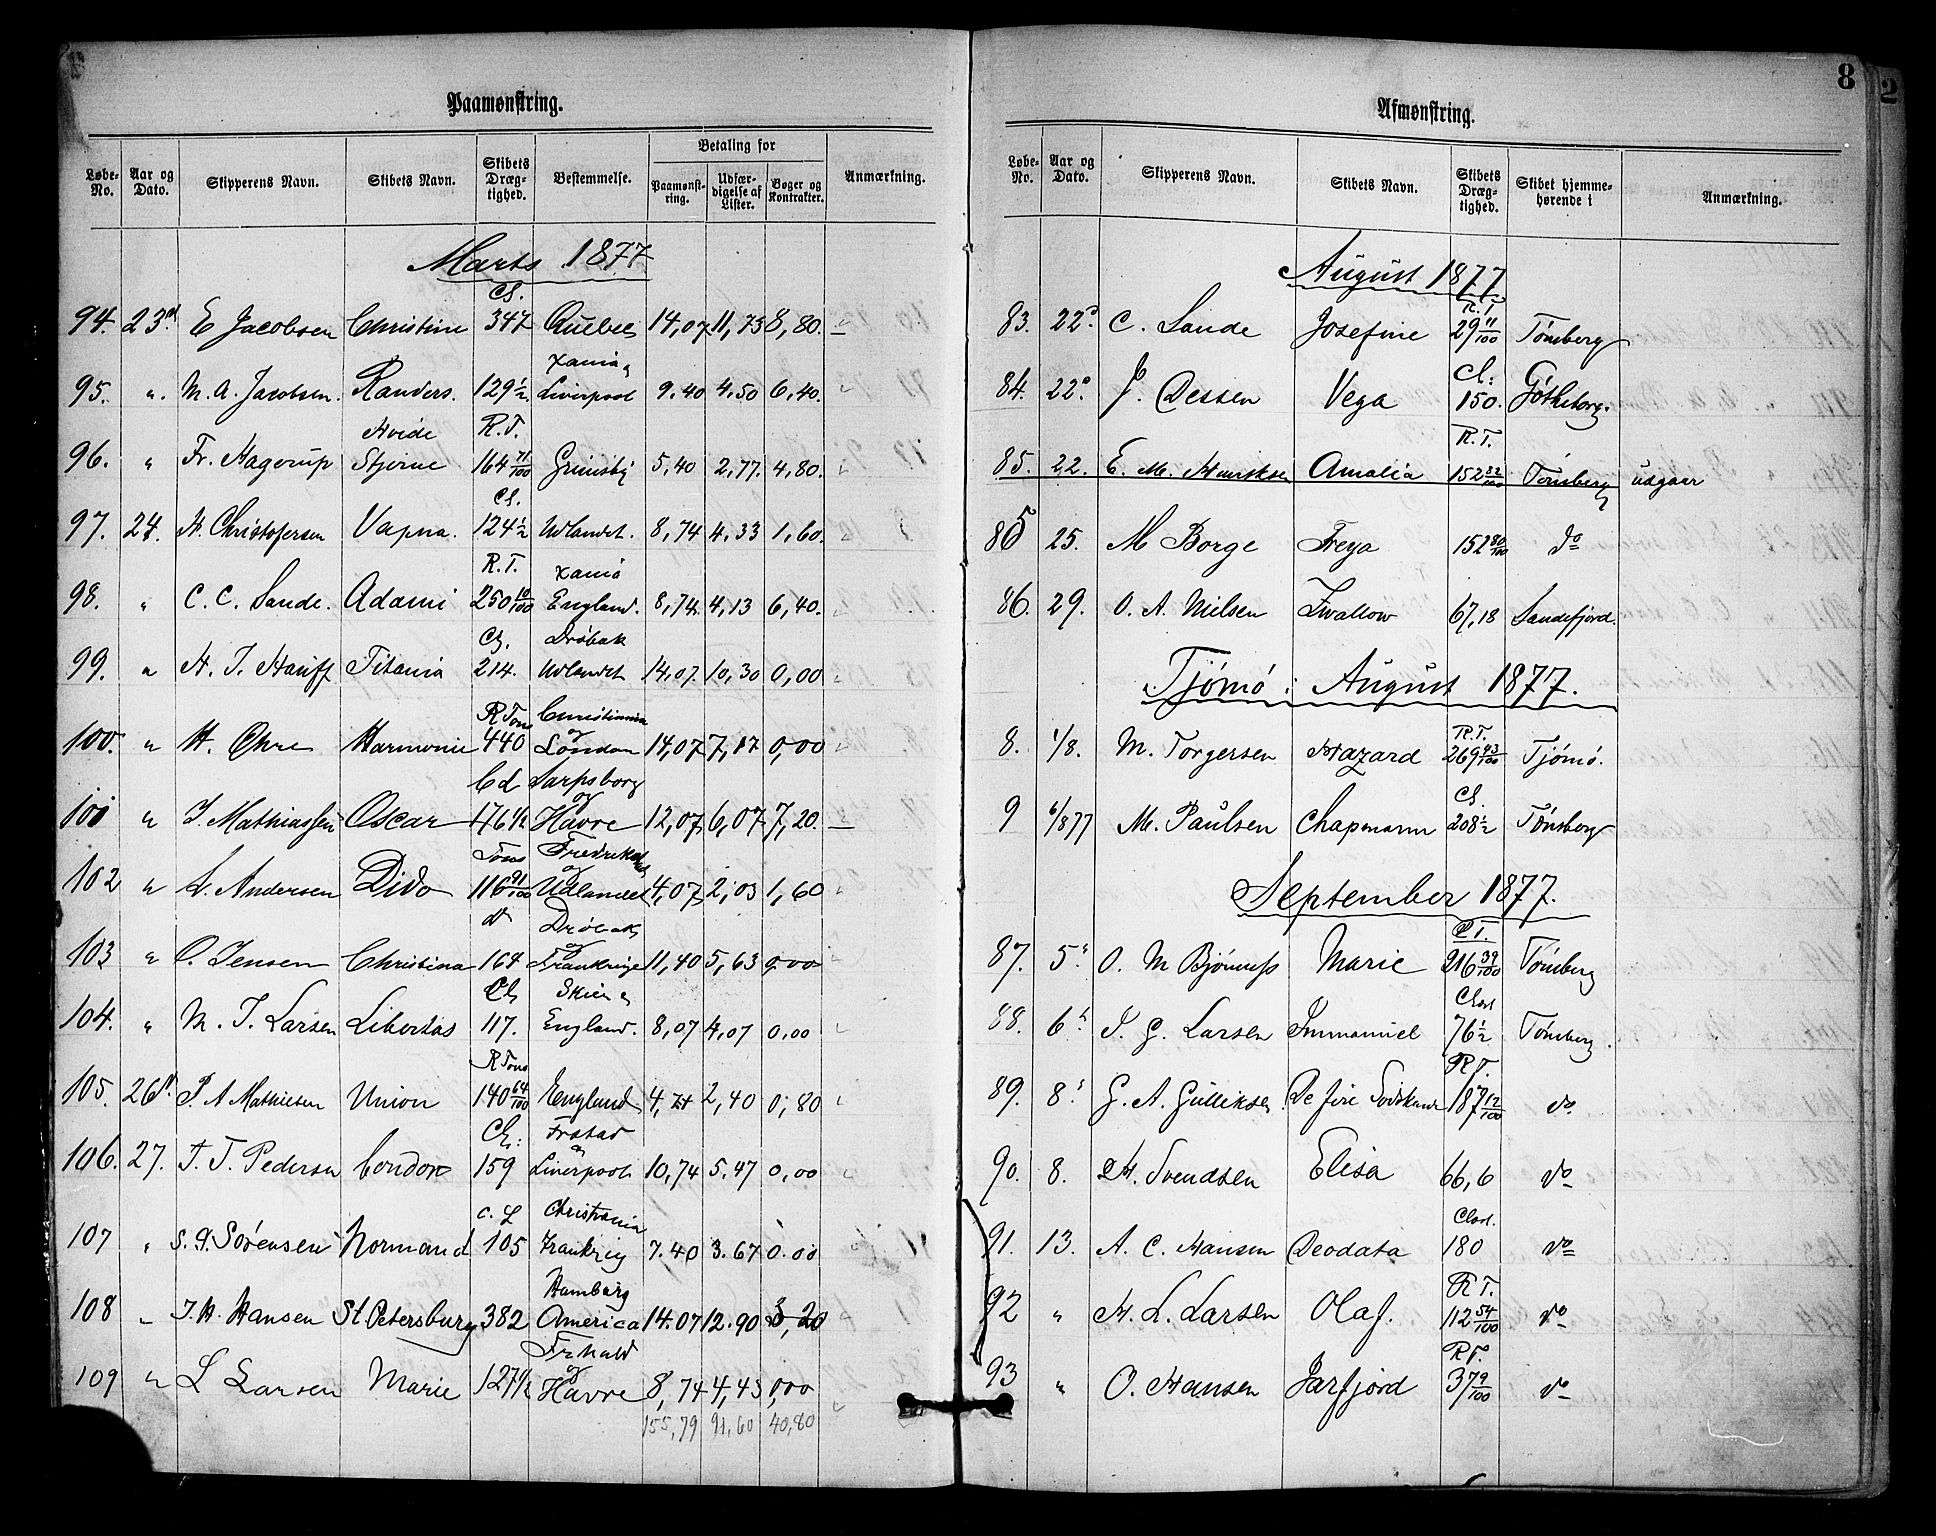 Paamønstring.
Løbe-No. Aar og Dato. Skipperens Navn. Skibets Navn. Skibets Dræg-tighed. Bestemmelse. Betaling for Paamønst-ring. Udfær-digelse af Lister. Bøger og Kontrakter. Anmærkning.
Marts 1877
Cl.
94. 23d E Jacobsen Christine 347 Quebec 14,07 11,73 8,80.
Xania &
95. ". M. A. Jacobsen. Randers. 129 1/2 Liverpool 9.40 4,50 6,40.
Hvide R.T.
96. " Fr. Hagerup Stjerne 164 71/100 Grimsby 5,40 2,77. 4,80.
Cl.
97. 24. H. Christofersen Vapna. 124 1/2 Udlandet. 8,74 4,33 1,60.
R.T. Xania
98. " C. C. Sande. Adami 250 10/100 England. 8,74. 4,13 6,40.
Cl. Drøbak
99. " H. J. Hauff Titania 214. Udlandet 14,07. 10,30 0,00
R Tons Christiania og
100. " H. Ohre Harmonie 440 London 14,07 7,17 0,00
Cl Sarpsborg og
101 " J. Mathiassen Oscar 176 1/2 Havre 12,07 6,07 7,20.
Tons og
102 " L. Andersen Dido 116 91/100 Udlandet 4,07 2,03 1,60
Drøbak og
103 " O. Jensen Christina 164 Frankrige 11,40 5,63 0,00
Cl Skien &
104. " M. J. Larsen Libertas 117. England. 8,07 4,07 0,00
R Tons
105. 26d. P. A Mathiesen Union 140 64/100 England 4,74 2,40 0,80
Cl. Frstad &
106. 27. T. T. Pedersen Condor 159 Liverpool 10,74 5,47 0,00
C. L Christiania
107 " S. G. Sörensen Normand 105 Frankrig 7.40 3.67 0.00
Hamburg
108 " J. H. Hansen St Petersburg 382 America 14.07 12.90 3,20
Frhald og
109 " L Larsen Marie 127 1/2 Havre 8,74 4,43 0,00
155,79 91,60 40,80
8
2
Afmønstring.
Løbe-No. Aar og Dato. Skipperens Navn. Skibets Navn. Skibets Dræg-tighed. Skibet hjemme-hørende i Anmærkning.
August 1877
R.T
83. 22d C. Sande Josefine 29 11/100 Tönsberg
Cl:
84. 22d. J. Dessen Vega 150. Götheborg.
R.T.
85. 22. E. M. Henriksen Amalia 152 32/100 Tönsberg udgaar
85 25. M Borge Freya 152 80/100 do
86. 29. O. A. Nielsen Swallow 67,18 Sandefjord.
Tjömö i August 1877.
R.T.
8. 1/8. M. Torgersen Hazard 269 43/100 Tjömö.
Cl.
9 6/8 77 M. Paulsen Chapmann 208 1/2 Tönsberg
September 1877.
R T.
87. 5d O. M Bjönness Marie 216 39/100 Tönsberg
Cl.
88. 6d J. G. Larsen Immanuel 76 1/2 Tönsberg.
R T.
89. 8d G. A. Gulliksen De fire Sødskende 187 12/100 do.
90. 8. H. Svendsen Elisa 66,6 do
Cl.
91. 13. A. C. Hansen Deodata 180 do
R T.
92 " H. L. Larsen Olaf. 112 54/100 do
R T.
93 " O. Hansen Jarfjord 37 9/100 do